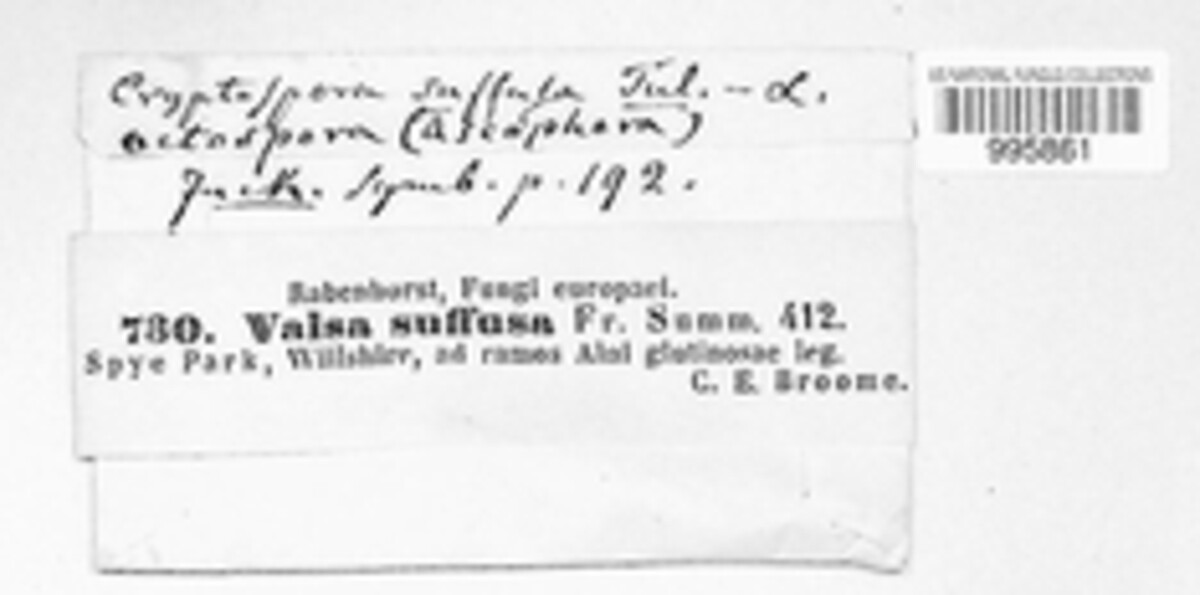 Cryptospora suffusa Tul. - α.
octospora (Ascophora)
Fuck. Symb. p. 192.
US NATIONAL FUNGUS COLLECTIONS
995861
Rabenhorst, Fungi europaei.
730. Valsa suffusa Fr. Summ. 412.
Spye Park, Willshire, ad ramos Alni glutinosae leg.
C. E. Broome.